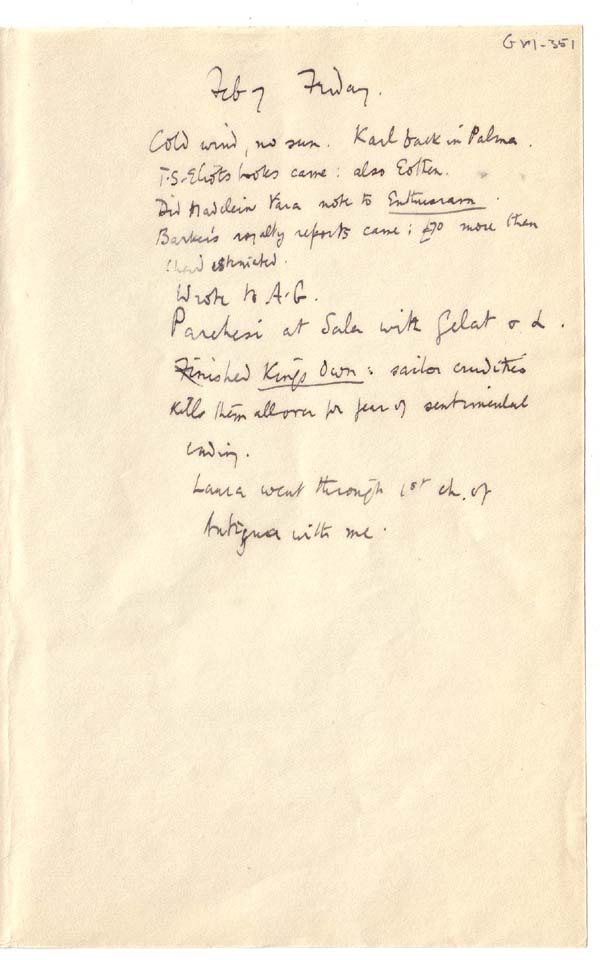 GVI-351
Feb 7 Friday.
Cold wind, no sun. Karl back in Palma.
T-S-Eliots books came: also Eothen.
Did Madelein Vara note to Enthusiasm.
Barker's royalty reports came: £70 more than
I had estimated.
Wrote to A.G.
Parchesi at Sala with Gelat & L.
Finished Kings Own: sailor crudities
Kills them all over for fear of sentimental
ending.
Laura went through 1st ch. of
Antigua with me.